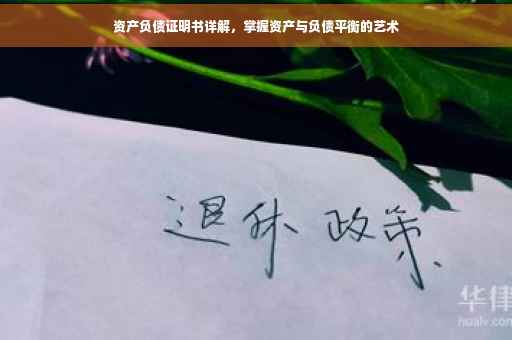 资产负债证明书详解，掌握资产与负债平衡的艺术
退休 政策
华律
hualv.com